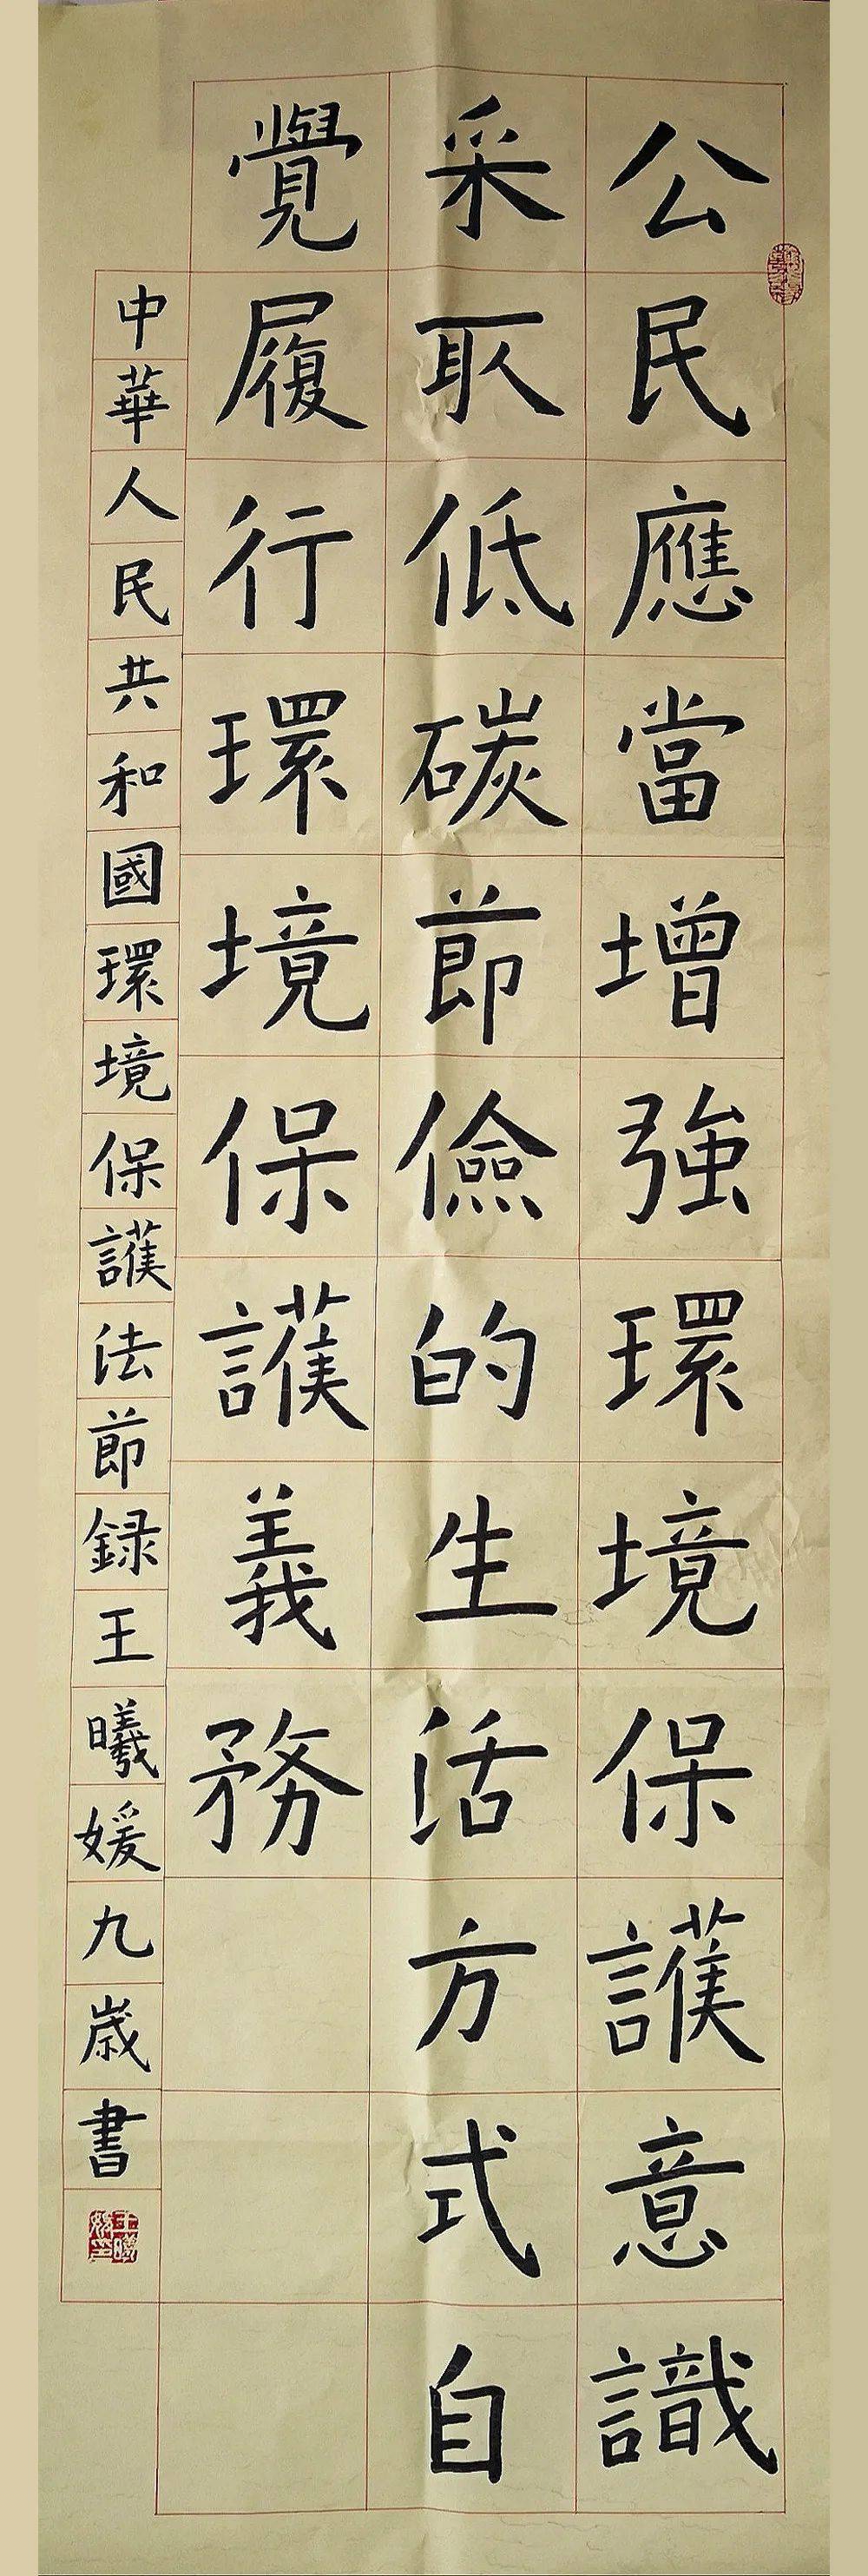 公民應當增強環境保護意識
采取低碳節儉的生活方式自
覺履行環境保護義務
中華人民共和國環境保護法節録王曦媛九歲書